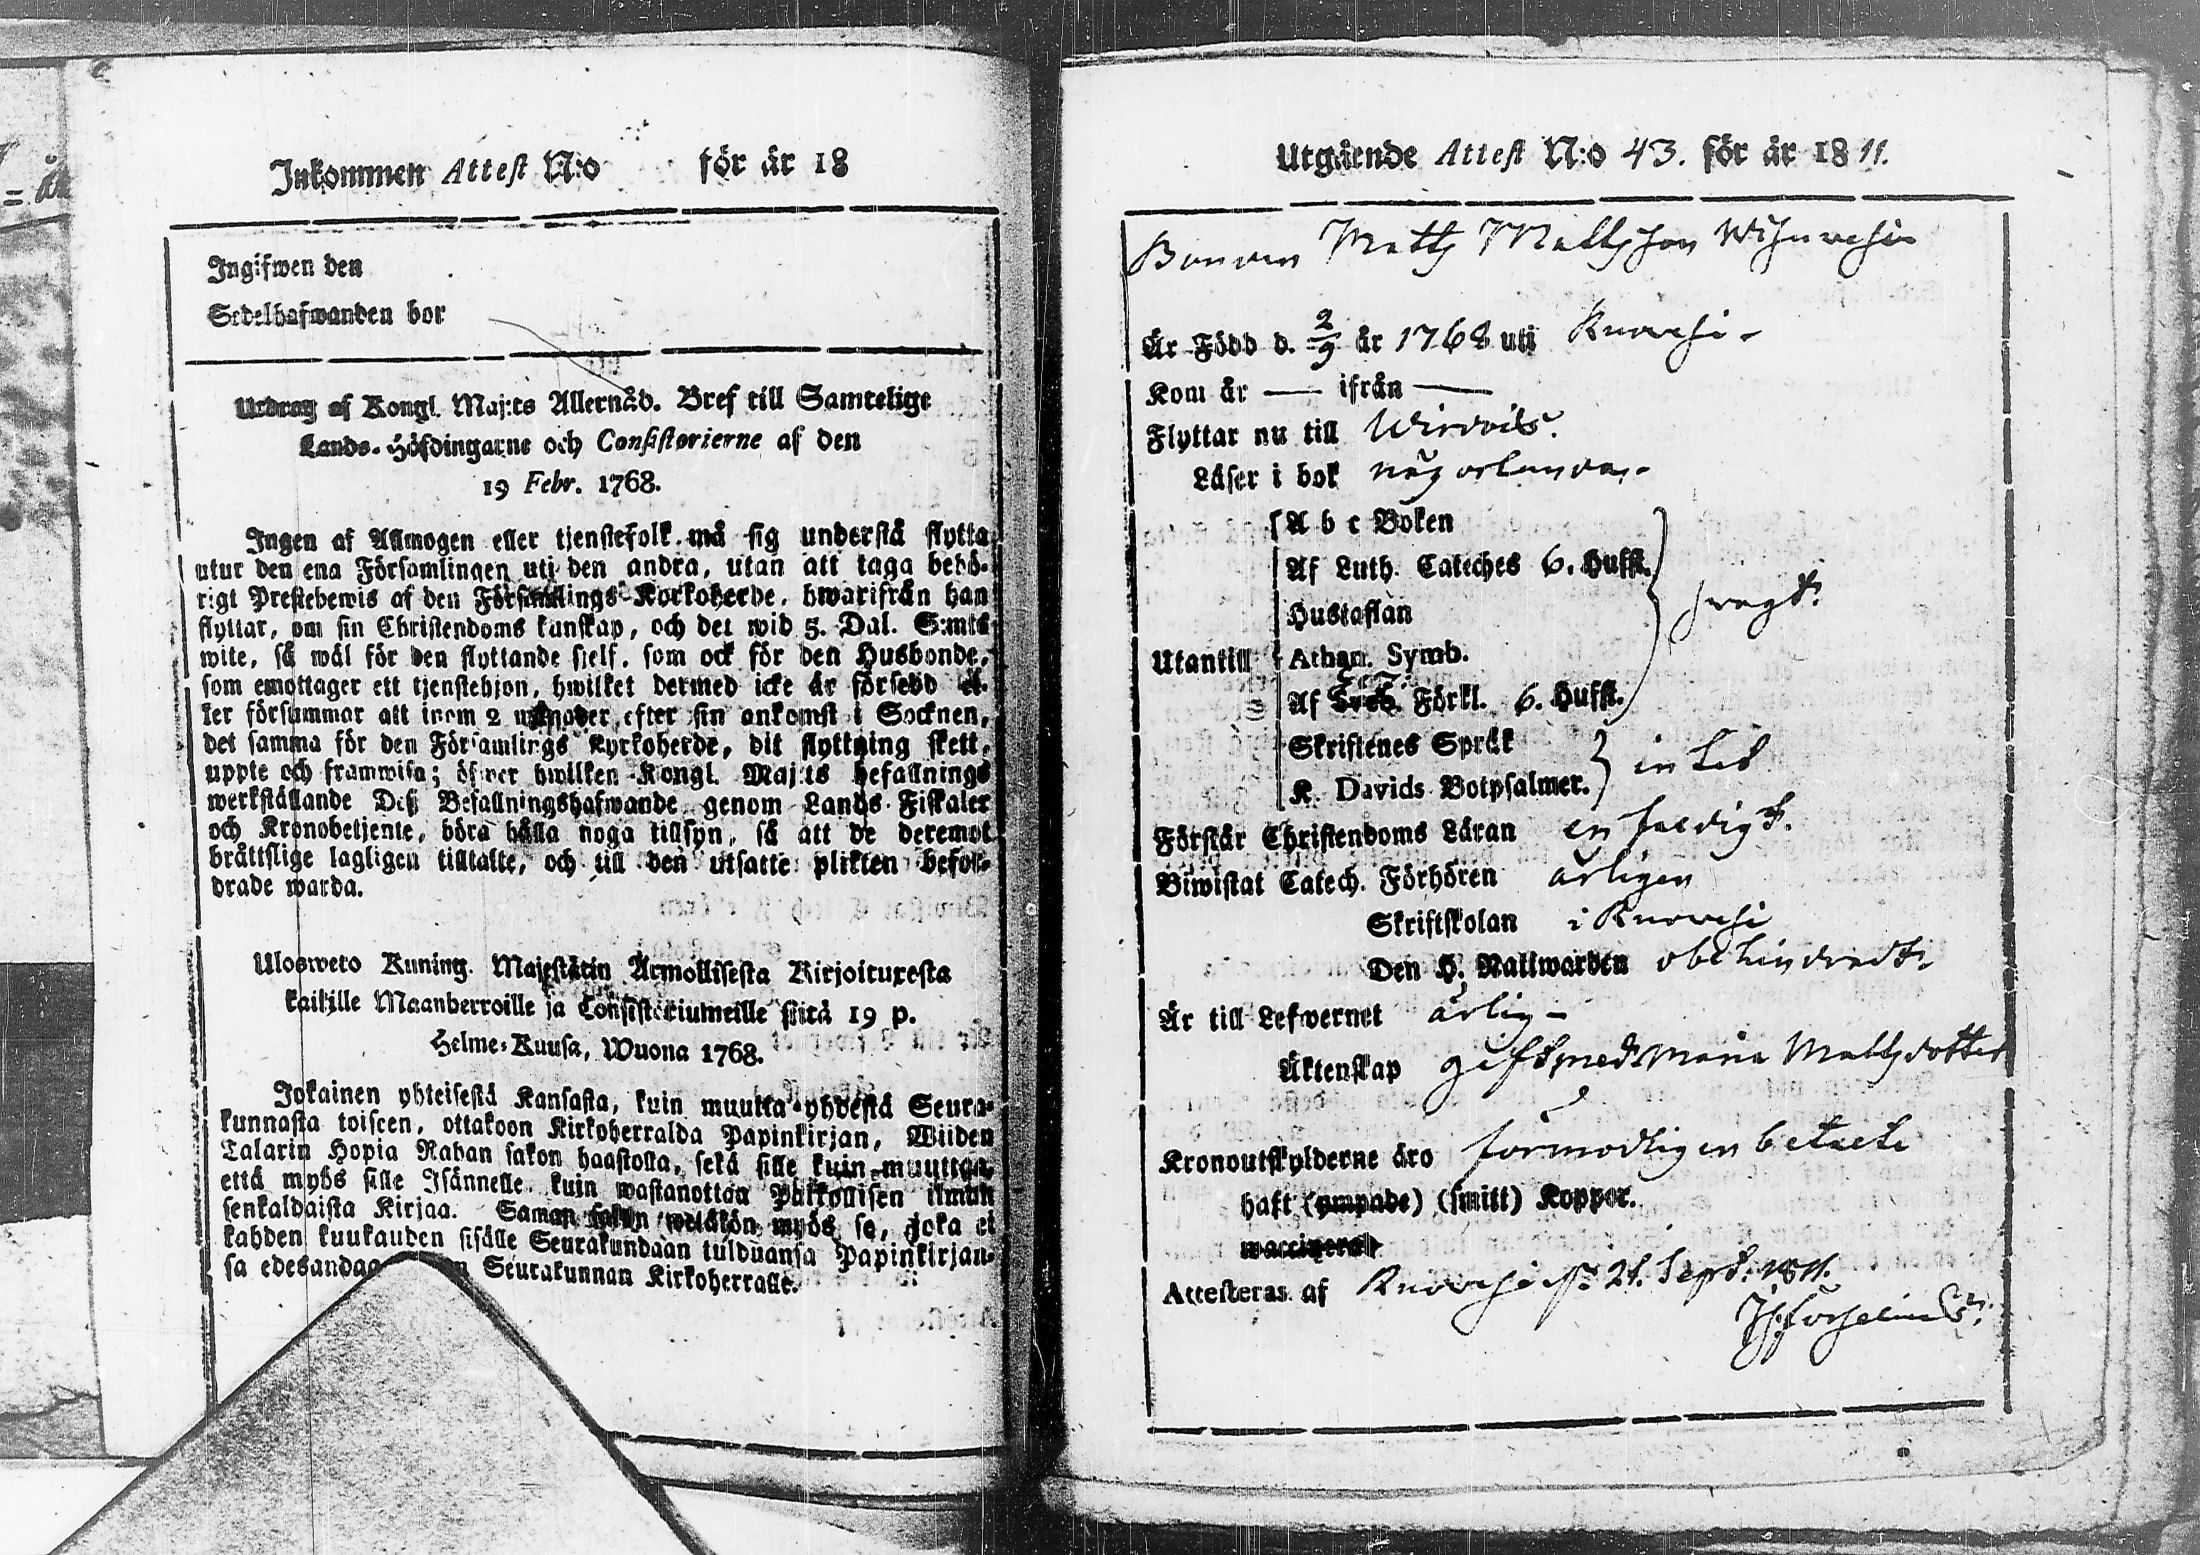 Inkommen Attest N:o för år 18
Ingifwen den
Sedelhafwanden bor
Utdrag af Kongl. Maj:ts Allernåd. Bref till Samtelige
Lands-Höfdingarne och Consistorierne af den
19 Febr. 1768.
Ingen af Allmogen eller tjenstefolk må sig understå flytta
utur den ena Församlingen uti den andra, utan att taga behö-
rigt Prestebewis af den Församlings Kyrkoherde, hwarifrån han
flyttar, om sin Christendoms kunskap, och det wid 5. Dal. S:mts
wite, så wäl för den flyttande sielf, som ock för den Husbonde,
som emottager ett tjenstehjon, hwilket dermed icke är försedd el-
ler försummar att inom 2 månader efter sin ankomst i Socknen,
det samma för den Församlings Kyrkoherde, dit flyttning skett,
uppte och framwisa; öfwer hwilken Kongl. Maj:ts befallnings
werkställande Deß Befallningshafwande genom Lands-Fiskaler
och Kronobetjente, böra hålla noga tillsyn, så att de deremot
bråttslige lagligen tilltalte, och till den utsatte plikten befor-
drade warda.
Ulosweto Kuning. Majestätin Armollisesta Kirjoituxesta
kaikille Maanherroille ja Consistoriumeille siitä 19 p.
Helme-Kuusa, Wuona 1768.
Jokainen yhteisestä Kansasta, kuin muutta yhdestä Seura-
kunnasta toiseen, ottakoon Kirkoherralda Papinkirjan, Wiiden
Talarin Hopia Rahan sakon haastolla, sekä sille kuin muuttaa,
että myös sille Isännelle, kuin wastanottaa Palkollisen ilman
senkaldaista Kirjaa. Saman sakon wetäkön myös se, joka ei
kahden kuukauden sisälle Seurakundaan tulduansa Papinkirjan-
sa edesandaa Seurakunnan Kirkoherralle.
Utgående Attest N:o 43. för år 1811.
Bonden Matts Mattsson
Är Född d. 2/9 år 1768 uti Ruovesi
Kom år — ifrån —
Flyttar nu till Wirdois.
Läser i bok någorlunda.
A b c Boken
Af Luth. Cateches 6. Hufst.
Hustaflan
swagt.
Utantill Athan. Symb.
Af Förkl. 6. Hufst.
Skriftenes Språk
intet
K. Davids Botpsalmer.
Förstår Christendoms Läran enfaldigt.
Biwistat Catech. Förhören årligen
Skriftskolan i Ruovesi
Den H. Nattwarden obehindradt
Är till Lefwernet ärlig
Äktenskap gift med Maria Mattsdotter
Kronoutskylderne äro förmodligen betalte
haft (ympade) (smitt) Koppor.
waccinerad
Attesteras af Ruovesi 21. Sept. 1811.